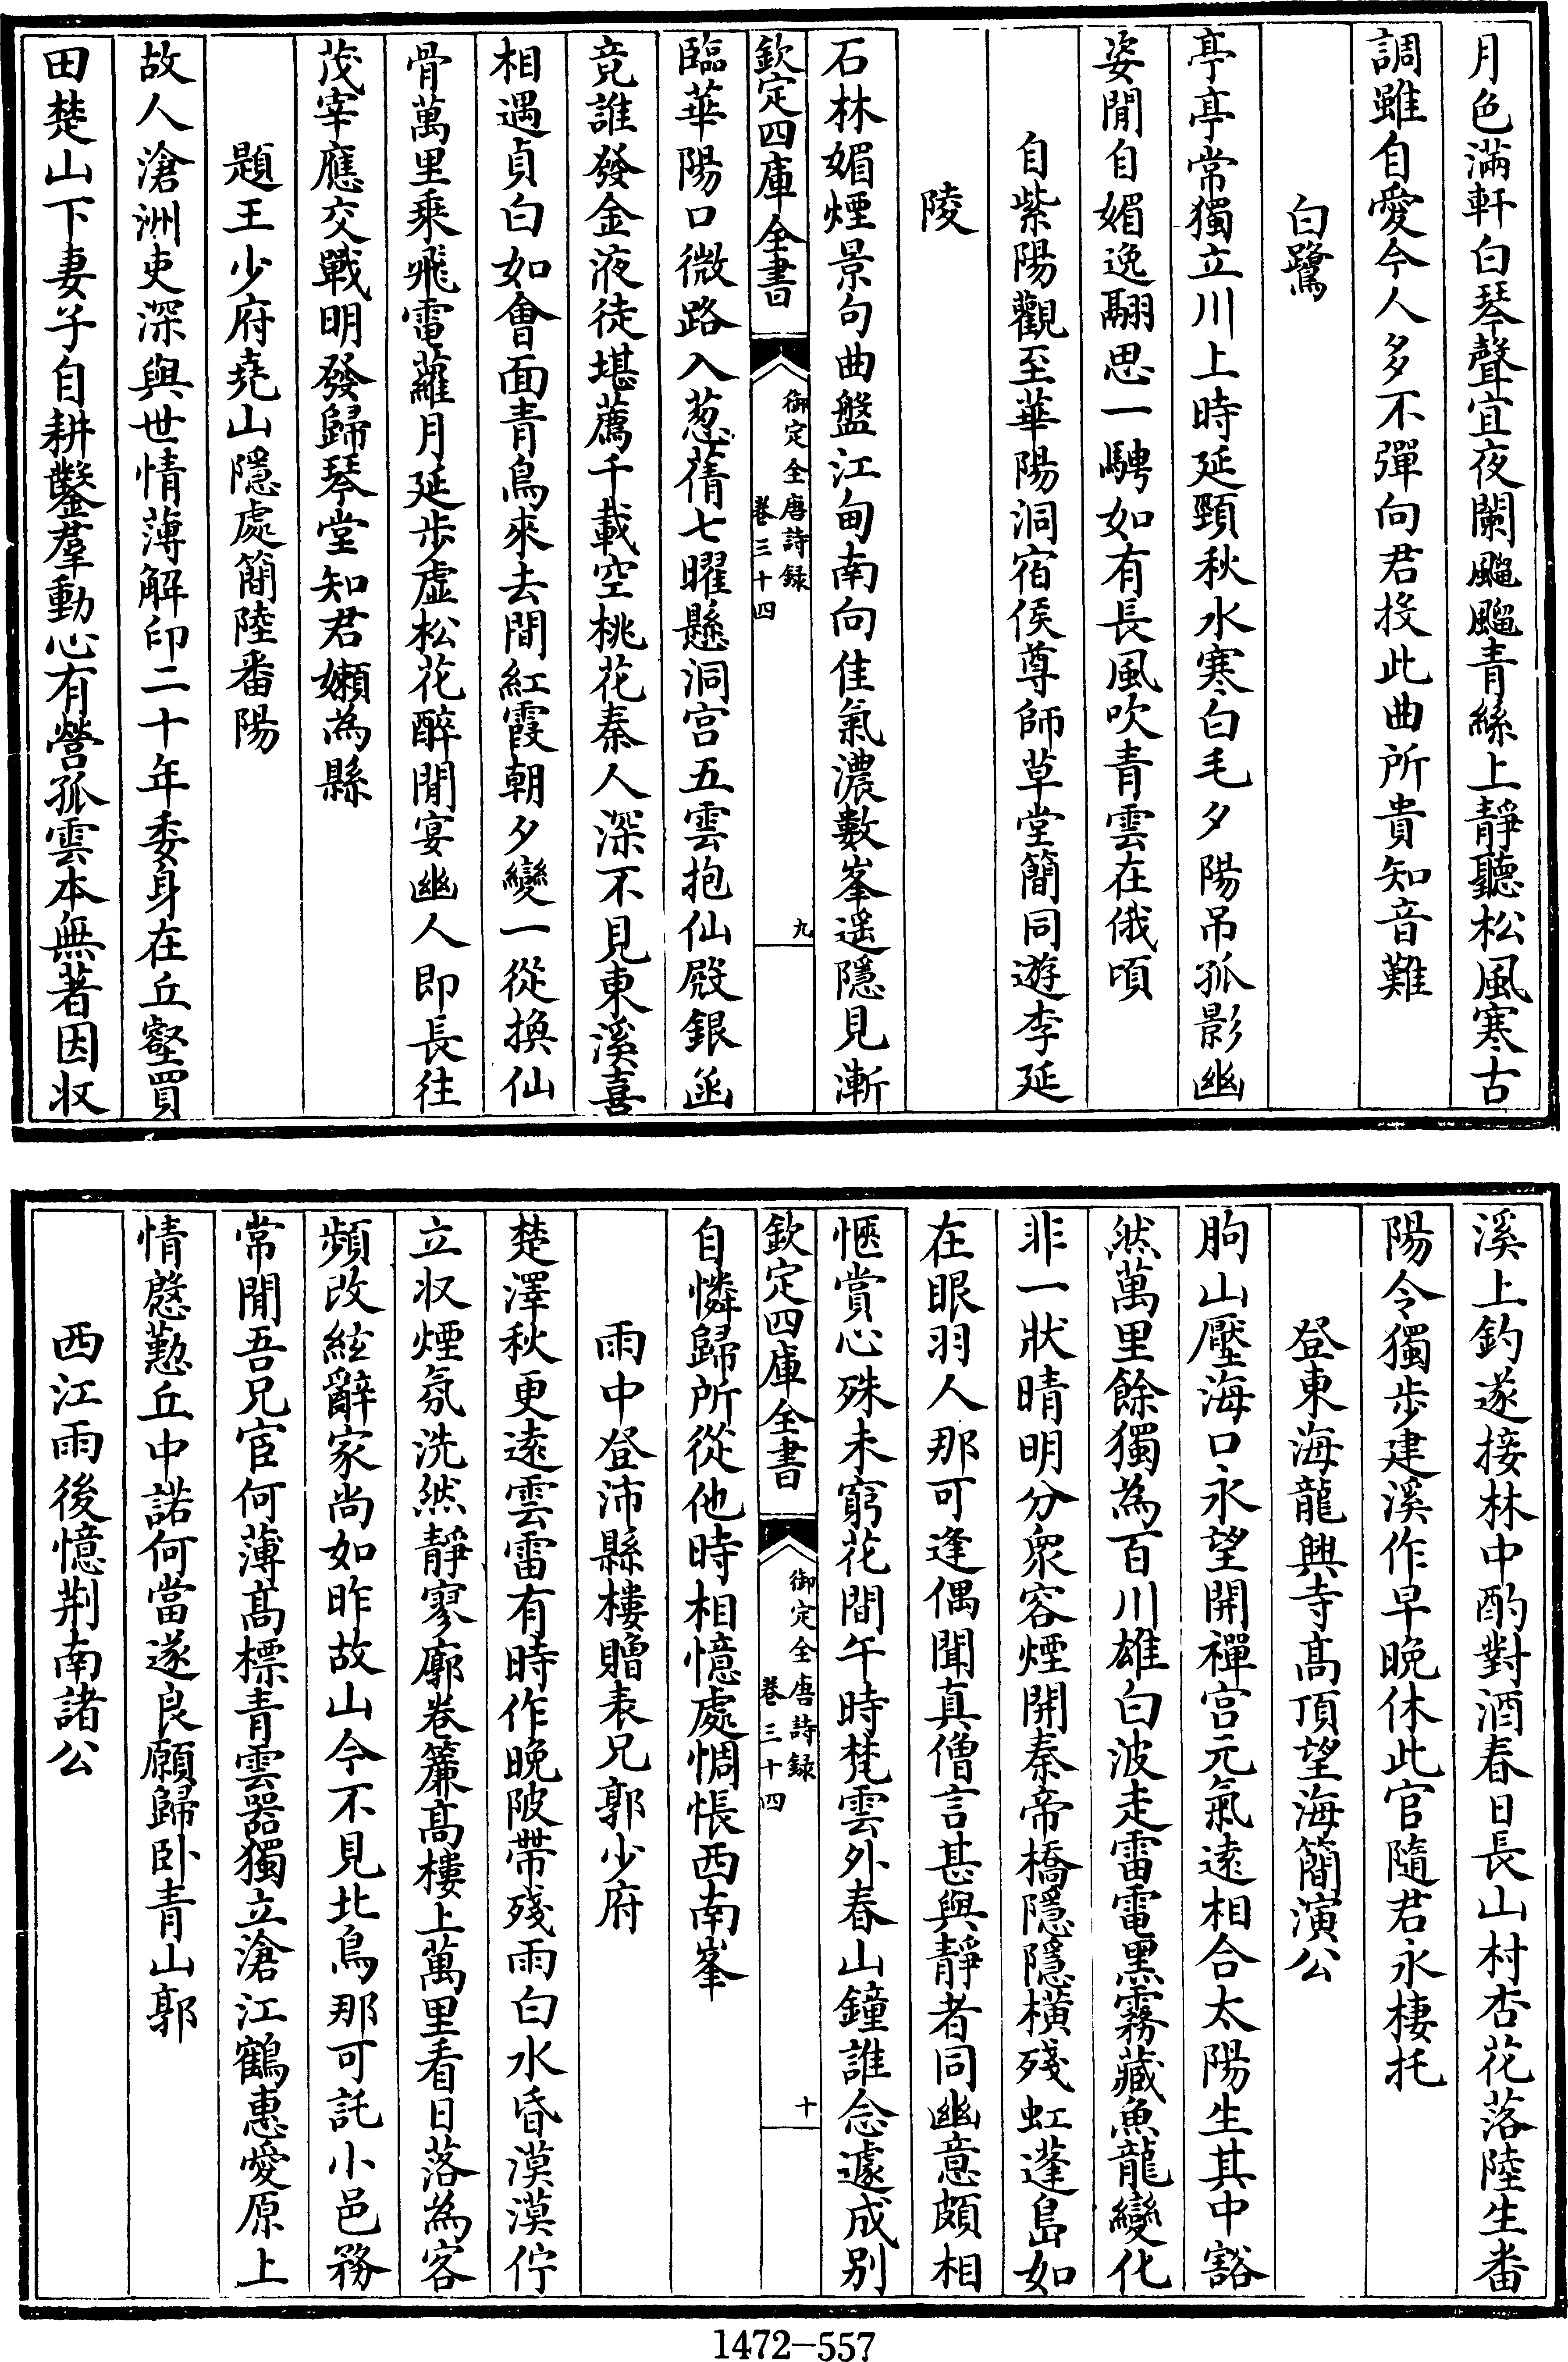 月色滿軒白琴聲宜夜闌飀飀青絲上靜聽松風寒古
調雖自愛今人多不彈向君投此曲所貴知音難
白鷺
亭亭常獨立川上時延頸秋水寒白毛夕陽吊孤影幽
姿閒自媚逸翮思一騁如有長風吹青雲在俄頃
自紫陽觀至華陽洞宿侯尊師草堂簡同遊李延
陵
石林媚煙景句曲盤江甸南向佳氣濃數峯遥隱見漸
欽定四庫全書
御定全唐詩録
卷三十四
九
臨華陽口微路入葱蒨七曜懸洞宫五雲抱仙殿銀函
竟誰發金液徒堪薦千載空桃花秦人深不見東溪喜
相遇貞白如會面青鳥來去間紅霞朝夕變一從換仙
骨萬里乘飛電蘿月延步虚松花醉閒宴幽人即長往
茂宰應交戰明發歸琴堂知君嬾為縣
題王少府堯山隱處簡陸番陽
故人滄洲吏深與世情薄解印二十年委身在丘壑買
田楚山下妻子自耕鑿羣動心有營孤雲本無著因收
溪上釣遂接林中酌對酒春日長山村杏花落陸生番
陽令獨步建溪作早晚休此官隨君永棲托
登東海龍興寺高頂望海簡演公
朐山壓海口永望開禪宫元氣遠相合太陽生其中豁
然萬里餘獨為百川雄白波走雷電黑霧藏魚龍變化
非一狀晴明分衆容煙開秦帝橋隱隱橫殘虹蓬島如
在眼羽人那可逢偶聞真僧言甚與靜者同幽意頗相
愜賞心殊未窮花間午時梵雲外春山鐘誰念遽成别
欽定四庫全書
御定全唐詩録
卷三十四
十
自憐歸所從他時相憶處惆悵西南峯
雨中登沛縣樓贈表兄郭少府
楚澤秋更遠雲雷有時作晚陂帶殘雨白水昏漠漠佇
立収煙氛洗然靜寥廓卷簾高樓上萬里看日落為客
頻改絃辭家尚如昨故山今不見北鳥那可託小邑務
常閒吾兄宦何薄高標青雲器獨立滄江鶴惠愛原上
情慇懃丘中諾何當遂良願歸卧青山郭
西江雨後憶荆南諸公
1472-557